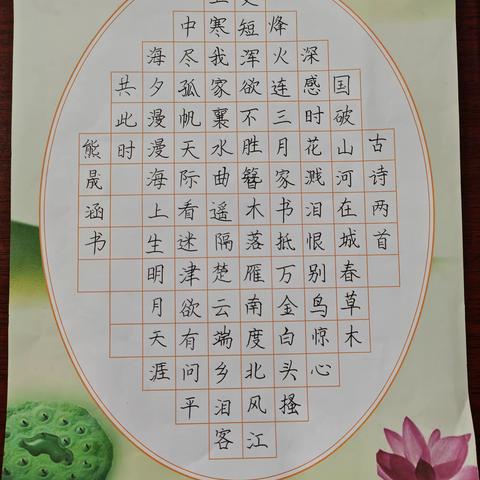 古诗两首
国破山河在城春草木
深感时花溅泪恨别鸟惊心
烽火连三月家书抵万金白头搔
更短浑欲不胜簪木落雁南度北风江
上寒我家襄水曲遥隔楚云端乡泪客
中尽孤帆天际看迷津欲有问平
海夕漫漫海上生明月天涯
共此时
熊晟涵书